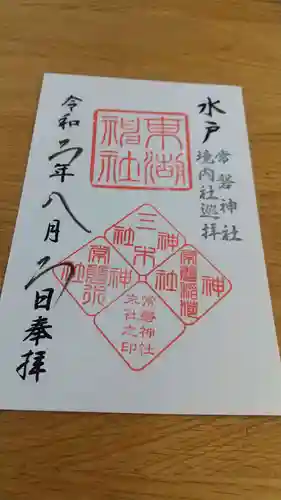 水戸
常磐神社
境内社巡拝
東湖
神社
三木
神社
常磐稲荷
神社
常磐神社
末社之印
令和二年八月二日奉拝